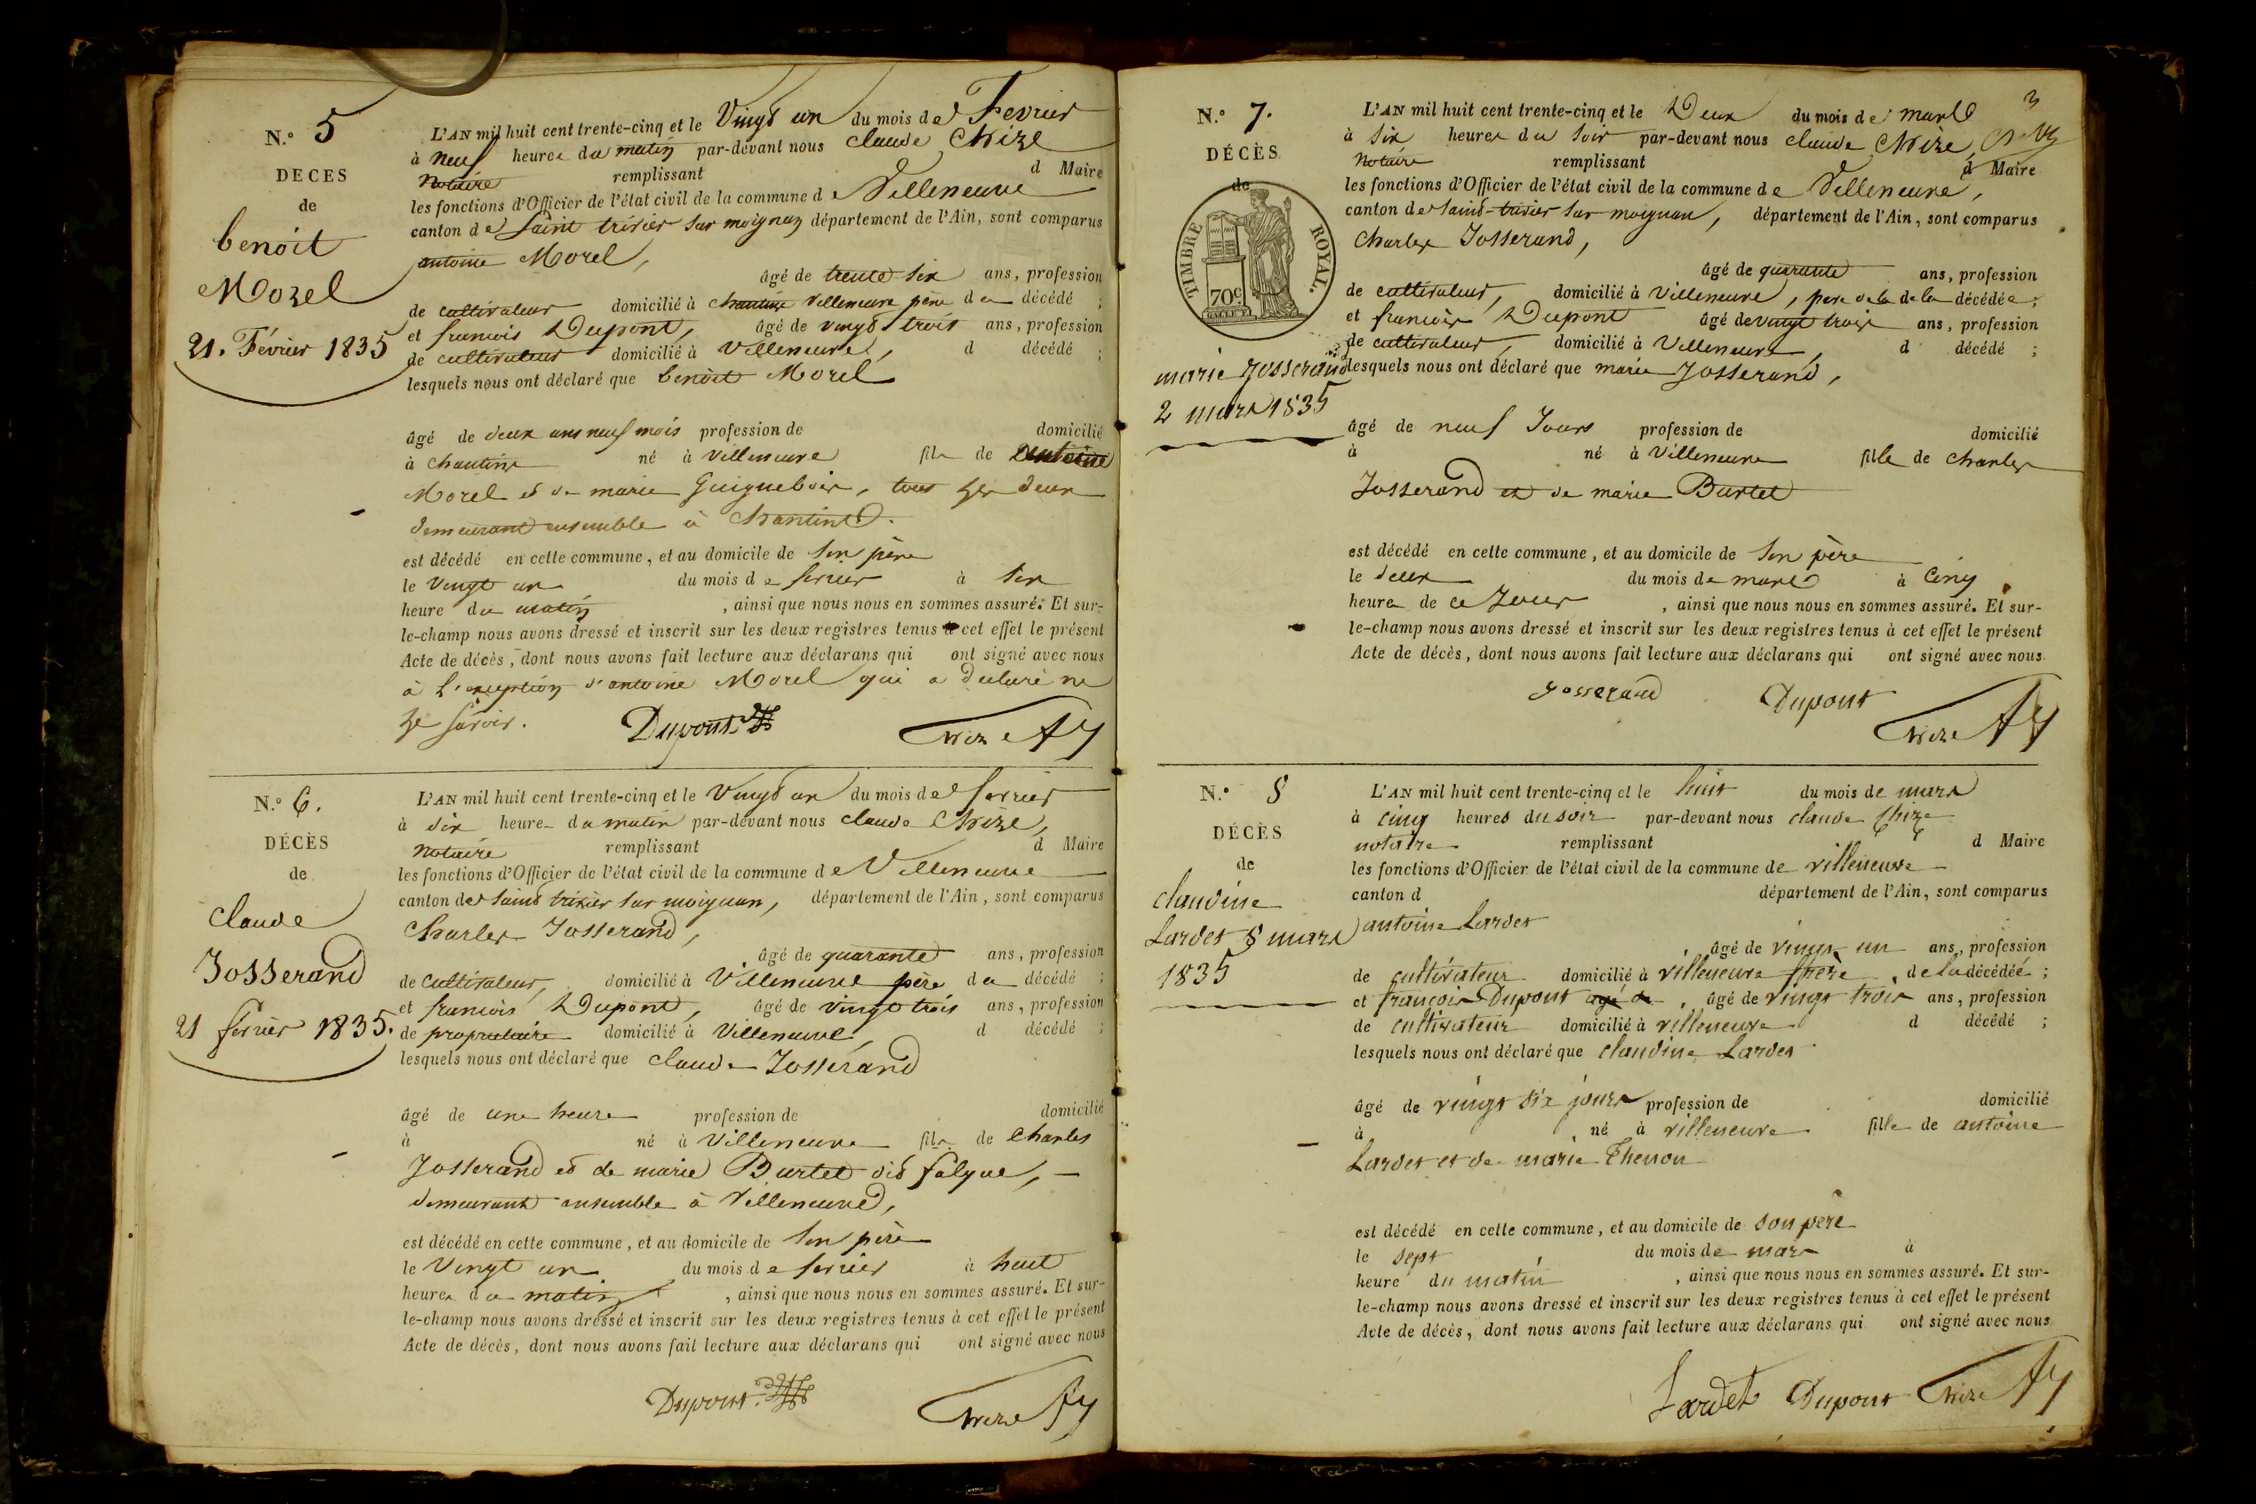 N.° 5
DECES
de
benoit
Morel
21. Février 1835
L'AN mil huit cent trente-cinq et le Vingt un du mois de Fevrier
à neuf heures du matin par-devant nous claude Chize
Notaire remplissant d Maire
les fonctions d'Officier de l'état civil de la commune de Villeneuve
canton de Saint trivier sur moignan département de l'Ain, sont comparus
antoine Morel,
âgé de trente six ans, profession
de cultivateur domicilié à chantins Villeneuve père du décédé ;
et francois Dupont, âgé de vingt trois ans, profession
de cultivateur domicilié à Villeneuve, d décédé ;
lesquels nous ont déclaré que benoit Morel
âgé de deux ans neuf mois profession de domicilié
à chantins né à Villeneuve fils de antoine
Morel et de marie Guignebois, tous les deux
demeurant ensemble à Chantins.
est décédé en cette commune, et au domicile de son père
le vingt un du mois de fevrier à six
heure du matin, ainsi que nous nous en sommes assuré. Et sur-
le-champ nous avons dressé et inscrit sur les deux registres tenus à cet effet le présent
Acte de décès, dont nous avons fait lecture aux déclarans qui ont signé avec nous
à l'exception d'antoine Morel qui a declaré ne
le savoir.
Dupont Chize
N.° 6.
DÉCÈS
de
claude
Josserand
21 fevrier 1835.
L'AN mil huit cent trente-cinq et le Vingt un du mois de fevrier
à dix heures du matin par-devant nous claude Chize,
Notaire remplissant d Maire
les fonctions d'Officier de l'état civil de la commune de Villeneuve
canton de saint trivier sur moignan, département de l'Ain, sont comparus
Charles Josserand,
âgé de quarante ans, profession
de cultivateur, domicilié à Villeneuve père du décédé ;
et francois Dupont, âgé de vingt trois ans, profession
de propriétaire domicilié à Villeneuve, d décédé ;
lesquels nous ont déclaré que claude Josserand
âgé de une heure profession de domicilié
à né à Villeneuve fils de Charles
Josserand et de marie Burtet dit falque,
demeurant ensemble à Villeneuve,
est décédé en cette commune, et au domicile de son père
le Vingt un du mois de fevrier à huit
heures du matin, ainsi que nous nous en sommes assuré. Et sur-
le-champ nous avons dressé et inscrit sur les deux registres tenus à cet effet le présent
Acte de décès, dont nous avons fait lecture aux déclarans qui ont signé avec nous
Dupont Chize
3
N.° 7.
DÉCÈS
de
TIMBRE ROYAL.
70c
marie Josserand
2 mars 1835
L'AN mil huit cent trente-cinq et le Deux du mois de mars
à six heures du soir par-devant nous claude Chize,
Notaire remplissant d Maire
les fonctions d'Officier de l'état civil de la commune de Villeneuve,
canton de saint-trivier sur moignan, département de l'Ain, sont comparus
Charles Josserand,
âgé de quarante ans, profession
de cultivateur, domicilié à Villeneuve, père de la de la décédée ;
et francois Dupont âgé de vingt trois ans, profession
de cultivateur, domicilié à Villeneuve, d décédé ;
lesquels nous ont déclaré que marie Josserand,
âgé de neuf Jours profession de domicilié
à né à Villeneuve fille de Charles
Josserand et de marie Burtet
est décédé en cette commune, et au domicile de son père
le deux du mois de mars à Cinq
heures de ce Jour, ainsi que nous nous en sommes assuré. Et sur-
le-champ nous avons dressé et inscrit sur les deux registres tenus à cet effet le présent
Acte de décès, dont nous avons fait lecture aux déclarans qui ont signé avec nous
Josserand Dupont
Chize
N.° 8
DÉCÈS
de
claudine
Lardet 8 mars
1835
L'AN mil huit cent trente-cinq et le huit du mois de mars
à cinq heures du soir par-devant nous claude Chize
notaire remplissant d Maire
les fonctions d'Officier de l'état civil de la commune de villeneuve
canton d département de l'Ain, sont comparus
antoine Lardet
âgé de vingt un ans, profession
de cultivateur domicilié à villeneuve père de la décédée ;
et françois Dupont agé de, âgé de vingt trois ans, profession
de cultivateur domicilié à villeneuve d décédé ;
lesquels nous ont déclaré que claudine Lardet
âgé de vingt six jours profession de domicilié
à né à villeneuve fille de antoine
Lardet et de marie Thenon
est décédé en cette commune, et au domicile de son père
le sept du mois de mars à
heure du matin, ainsi que nous nous en sommes assuré. Et sur-
le-champ nous avons dressé et inscrit sur les deux registres tenus à cet effet le présent
Acte de décès, dont nous avons fait lecture aux déclarans qui ont signé avec nous
Lardet Dupont Chize